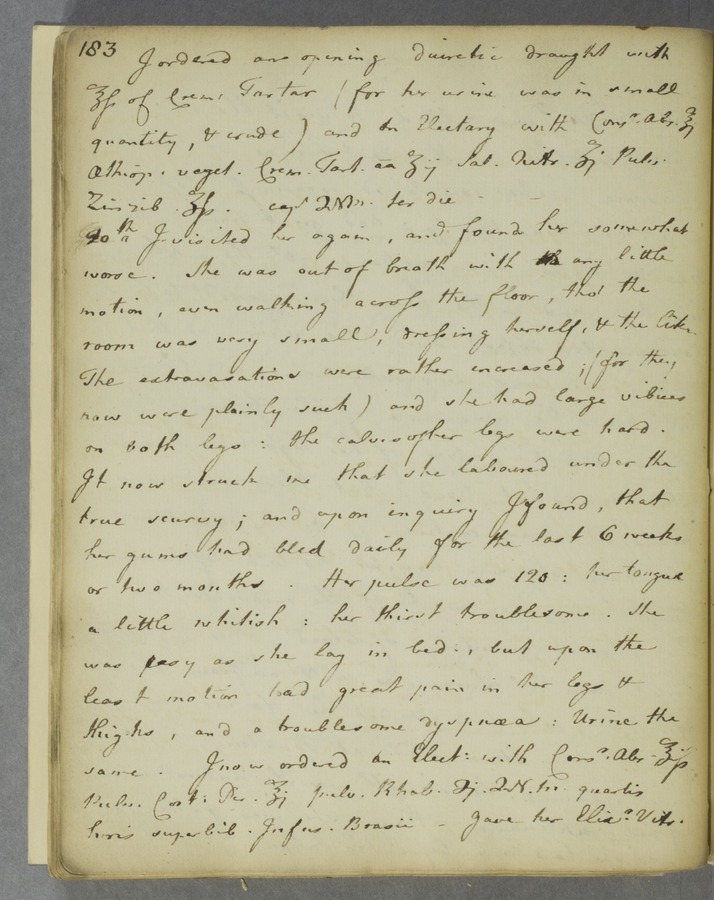 183 I ordered an opening diuretic draught with
℥ß of Crem: Tartar (for her urine was in small
quantity, & crude) and an Electary with Consr. Abs. ℥j
Æthiop. veget. Crem. Tart. āā ʒij Sal. Nitr. ʒj Pulv.
Zinzib. ʒß. cap. ter die
20th I visited her again, and found her somewhat
worse. She was out of breath with any little
motion, even walking across the floor, tho' the
room was very small, dressing herself, & the like.
The extravasations were rather increased; (for they
now were plainly such) and she had large vibices
on both legs: the calves of her legs were hard.
It now struck me that she laboured under the
true scurvy; and upon inquiry I found, that
her gums had bled daily for the last 6 weeks
or two months. Her pulse was 120: her tongue
a little whitish: her thirst troublesome. She
was easy as she lay in bed, but upon the
least motion had great pain in her legs &
thighs, and a troublesome dyspnœa: Urine the
same. I now ordered an Elect: with Consr. Abs.
Pulv. Cort: Per. ʒj pulv. Rhab. quartis
horis superbib. Infus. Brasii - gave her Elixr. Vitr.